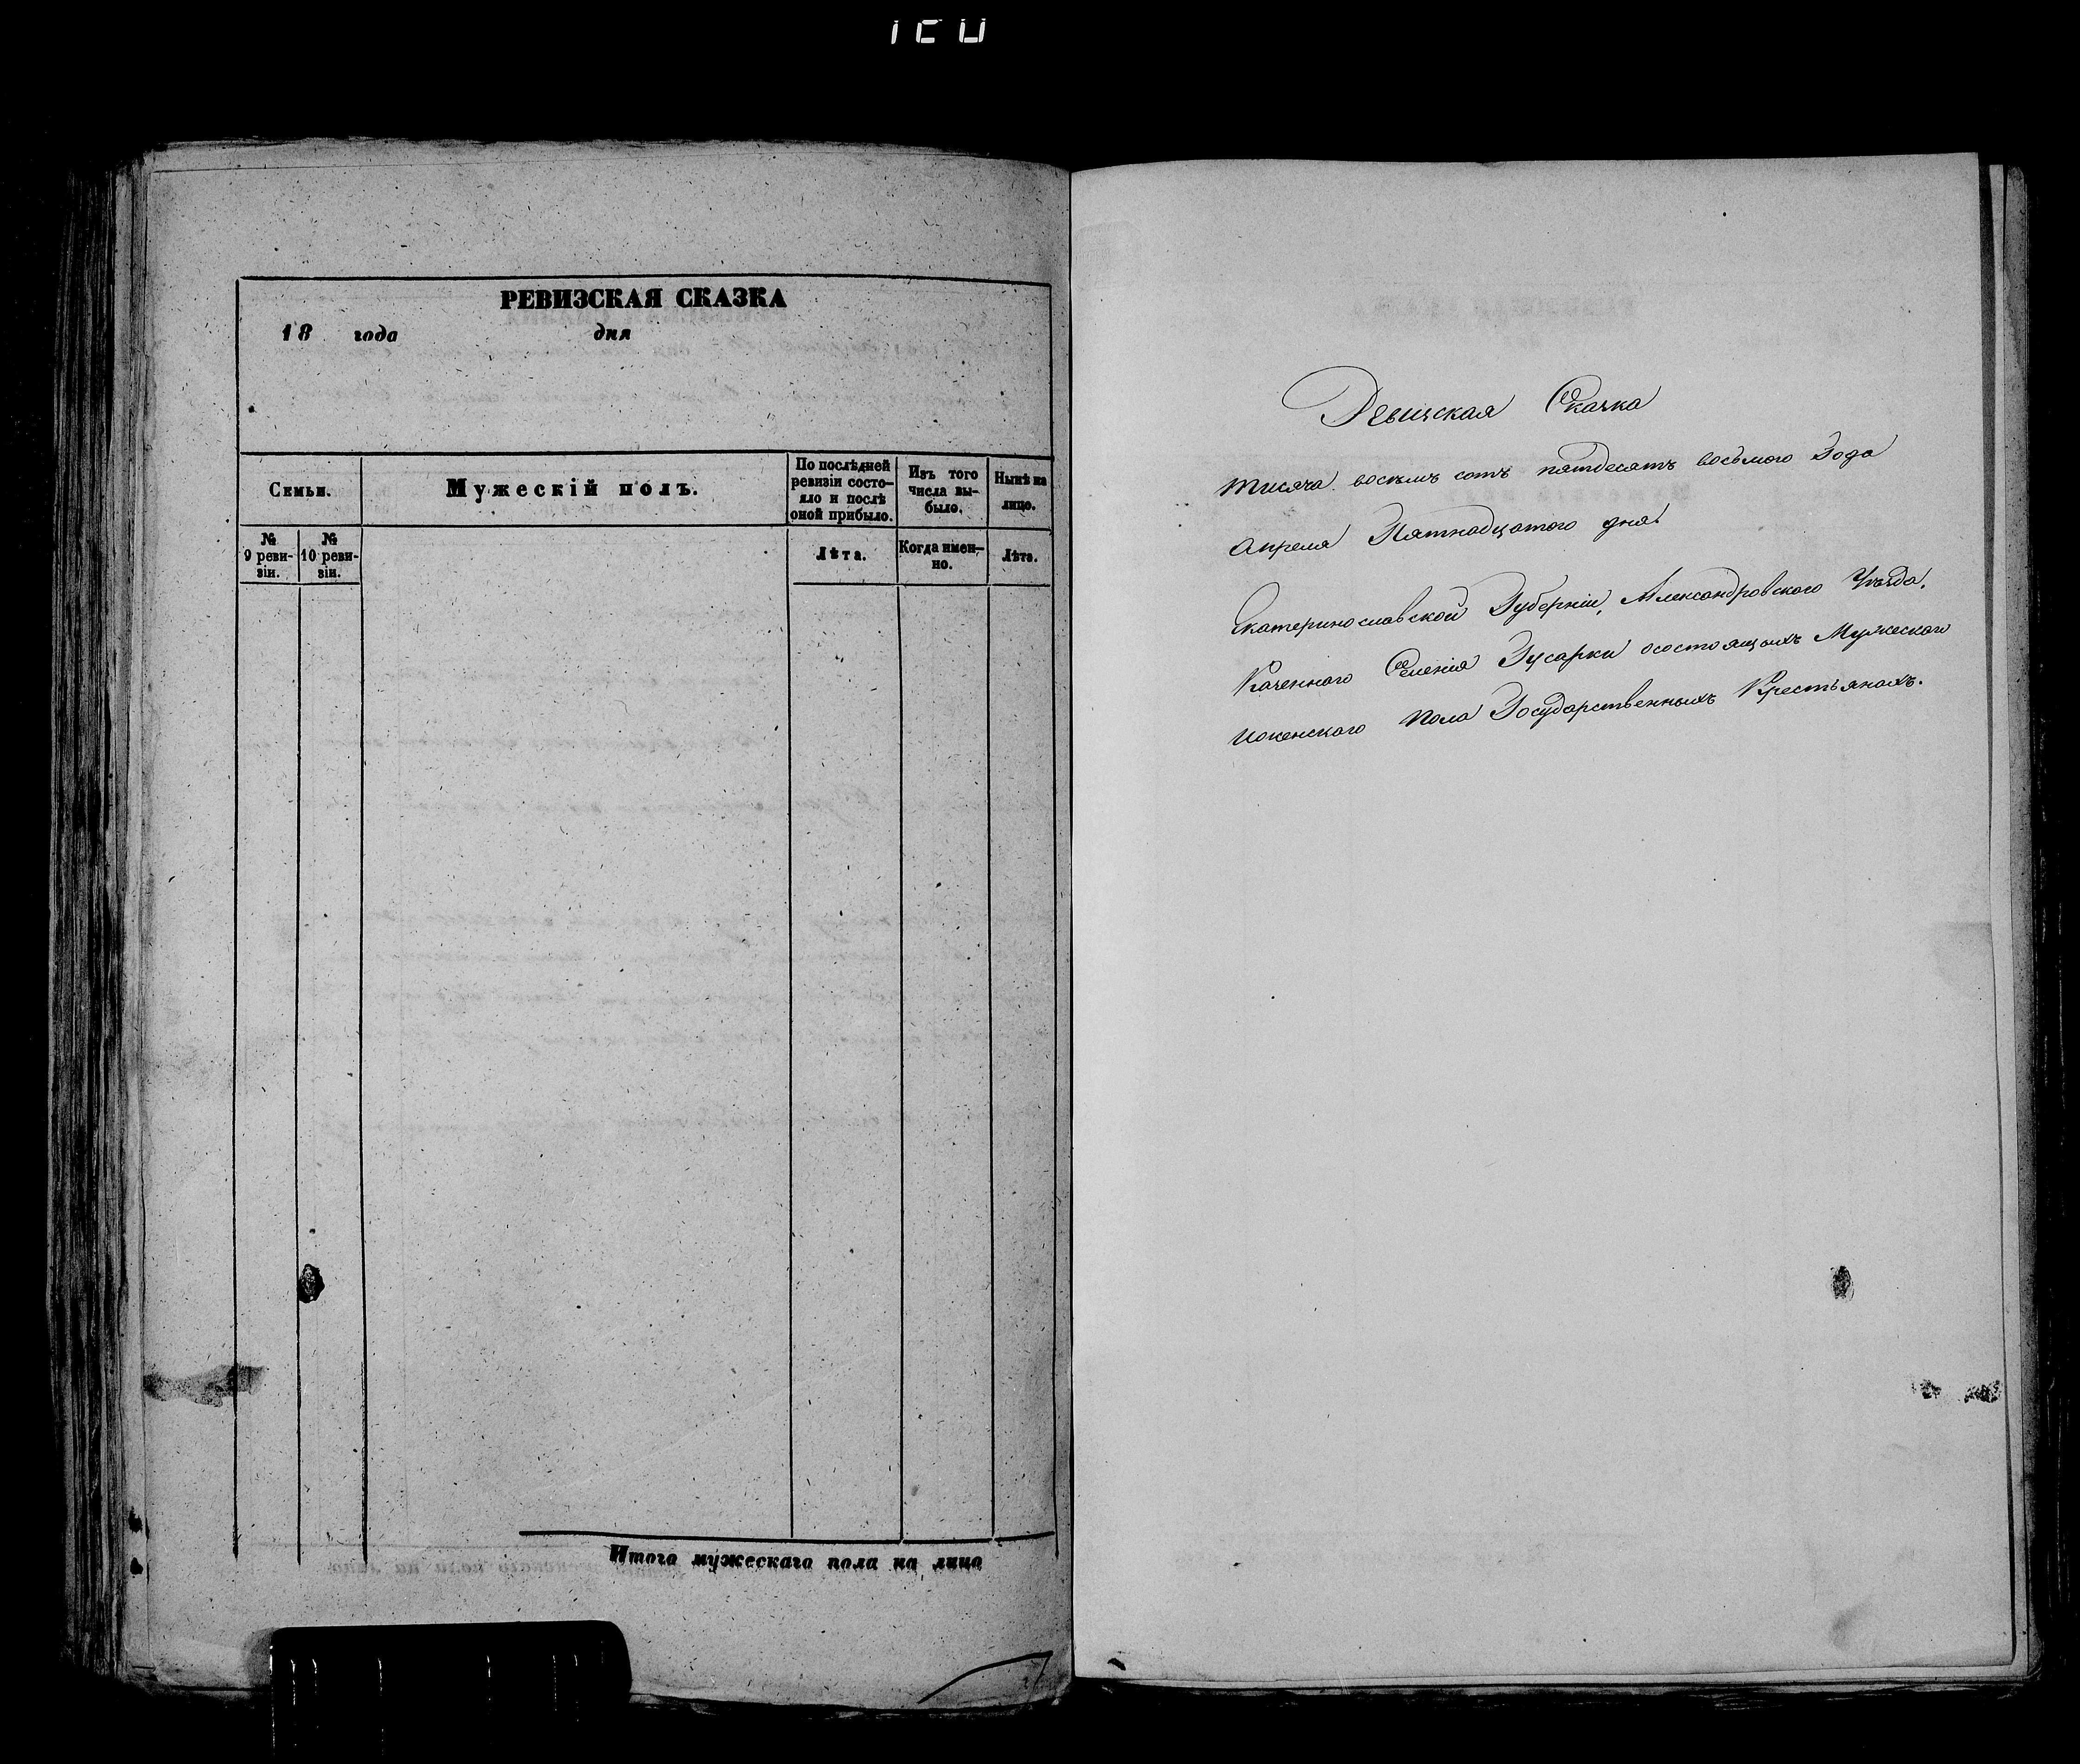 РЕВИЗСКАЯ СКАЗКА
18 года дня
Семьи.
Мужескій полъ.
По послѣдней
ревизіи состо-
яло и послѣ
оной прибыло.
Изъ того
числа вы-
было.
Нынѣ на
лицо.
№
9 реви-
зіи.
№
10 реви-
зіи.
Лѣта.
Когда имен-
но.
Лѣта.
Итого мужескаго пола на лицо
Ревизская Сказка
тисяча восемъ сотъ пятдесятъ восьмого Года
Апреля Пятнадцатого дня.
Екатеринославской Губерніи, Александровского Уѣзда,
Казенного Селенія Гусарки осостоящихъ Мужеского
иженского пола Государственныхъ Крестьянахъ.